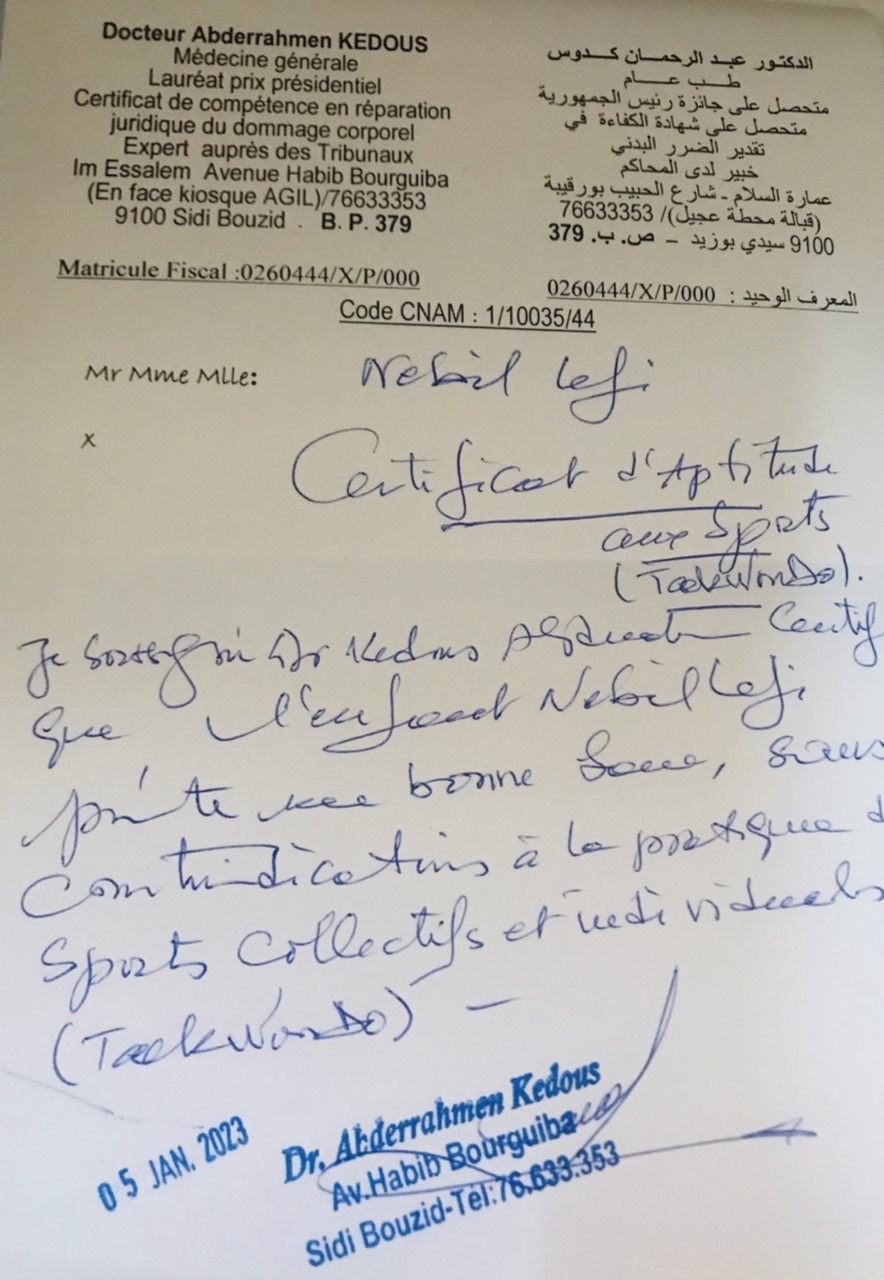 Docteur Abderrahmen KEDOUS
Médecine générale
Lauréat prix présidentiel
Certificat de compétence en réparation
juridique du dommage corporel
Expert auprès des Tribunaux
Im Essalem Avenue Habib Bourguiba
(En face kiosque AGIL)/76633353
9100 Sidi Bouzid . B. P. 379
Matricule Fiscal :0260444/X/P/000
الدكتور عبد الرحمان كدوس
طب عام
متحصل على جائزة رئيس الجمهورية
متحصل على شهادة الكفاءة في
تقدير الضرر البدني
خبير لدى المحاكم
عمارة السلام - شارع الحبيب بورقيبة
(قبالة محطة عجيل)/ 76633353
9100 سيدي بوزيد – ص. ب. 379
المعرف الوحيد : 0260444/X/P/000
Code CNAM : 1/10035/44
Mr Mme Mlle: Nebil Lefi
x
Certificat d'Aptitude
aux Sports
(TaekWonDo).
Je soussigné Dr Kedous Certif
que l'enfant Nebil Lefi
bonne sans
Contrindications à la pratique d
Sports Collectifs et individuels
(TaekWonDo) –
05 JAN. 2023
Dr. Abderrahmen Kedous
Av.Habib Bourguiba
Sidi Bouzid-Tél:76.633.353